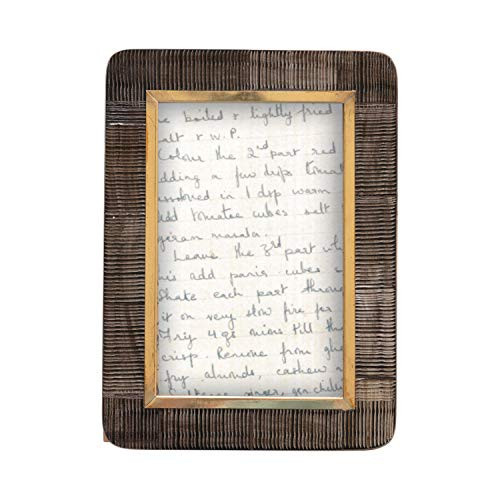 be boiled & lightly fried
salt & w.P.
Colour the 2nd part red
adding a few drops tomat
dissolved in 1 dsp warm
Add tomatoe cubes salt
garam masala.
Leave the 3rd part whi
this add panir cubes s
Shake each part throu
it on very slow fire for
Fry 4 gs onions till th
crisp. Remove from ghe
fry almonds, cashew n
ginger, grn chilli